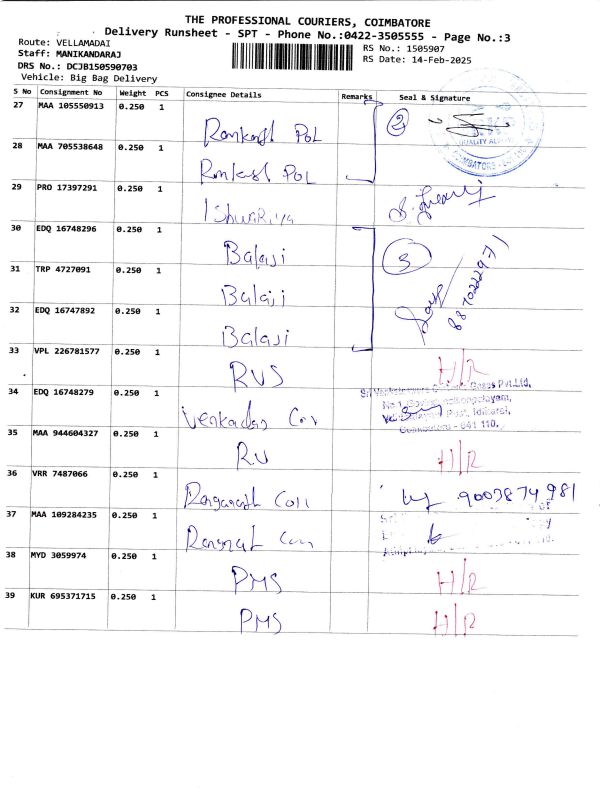 THE PROFESSIONAL COURIERS, COIMBATORE
Delivery Runsheet - SPT - Phone No.:0422-3505555 - Page No.:3
Route: VELLAMADAI
Staff: MANIKANDARAJ
DRS No.: DCJB150590703
Vehicle: Big Bag Delivery
RS No.: 1505907
RS Date: 14-Feb-2025
S No Consignment No Weight PCS Consignee Details Remarks Seal & Signature
27 MAA 105550913 0.250 1 Ramkash POL 2
28 MAA 705538648 0.250 1 POL
29 PRO 17397291 0.250 1 IShwaRiya
30 EDQ 16748296 0.250 1 Balaji 3
31 TRP 4727091 0.250 1 Balaji
32 EDQ 16747892 0.250 1 Balaji
33 VPL 226781577 0.250 1 RVS H/R
34 EDQ 16748279 0.250 1
35 MAA 944604327 0.250 1 RV H/R
36 VRR 7487066 0.250 1 9003874981
37 MAA 109284235 0.250 1
38 MYD 3059974 0.250 1 PMS H/R
39 KUR 695371715 0.250 1 PMS H/R